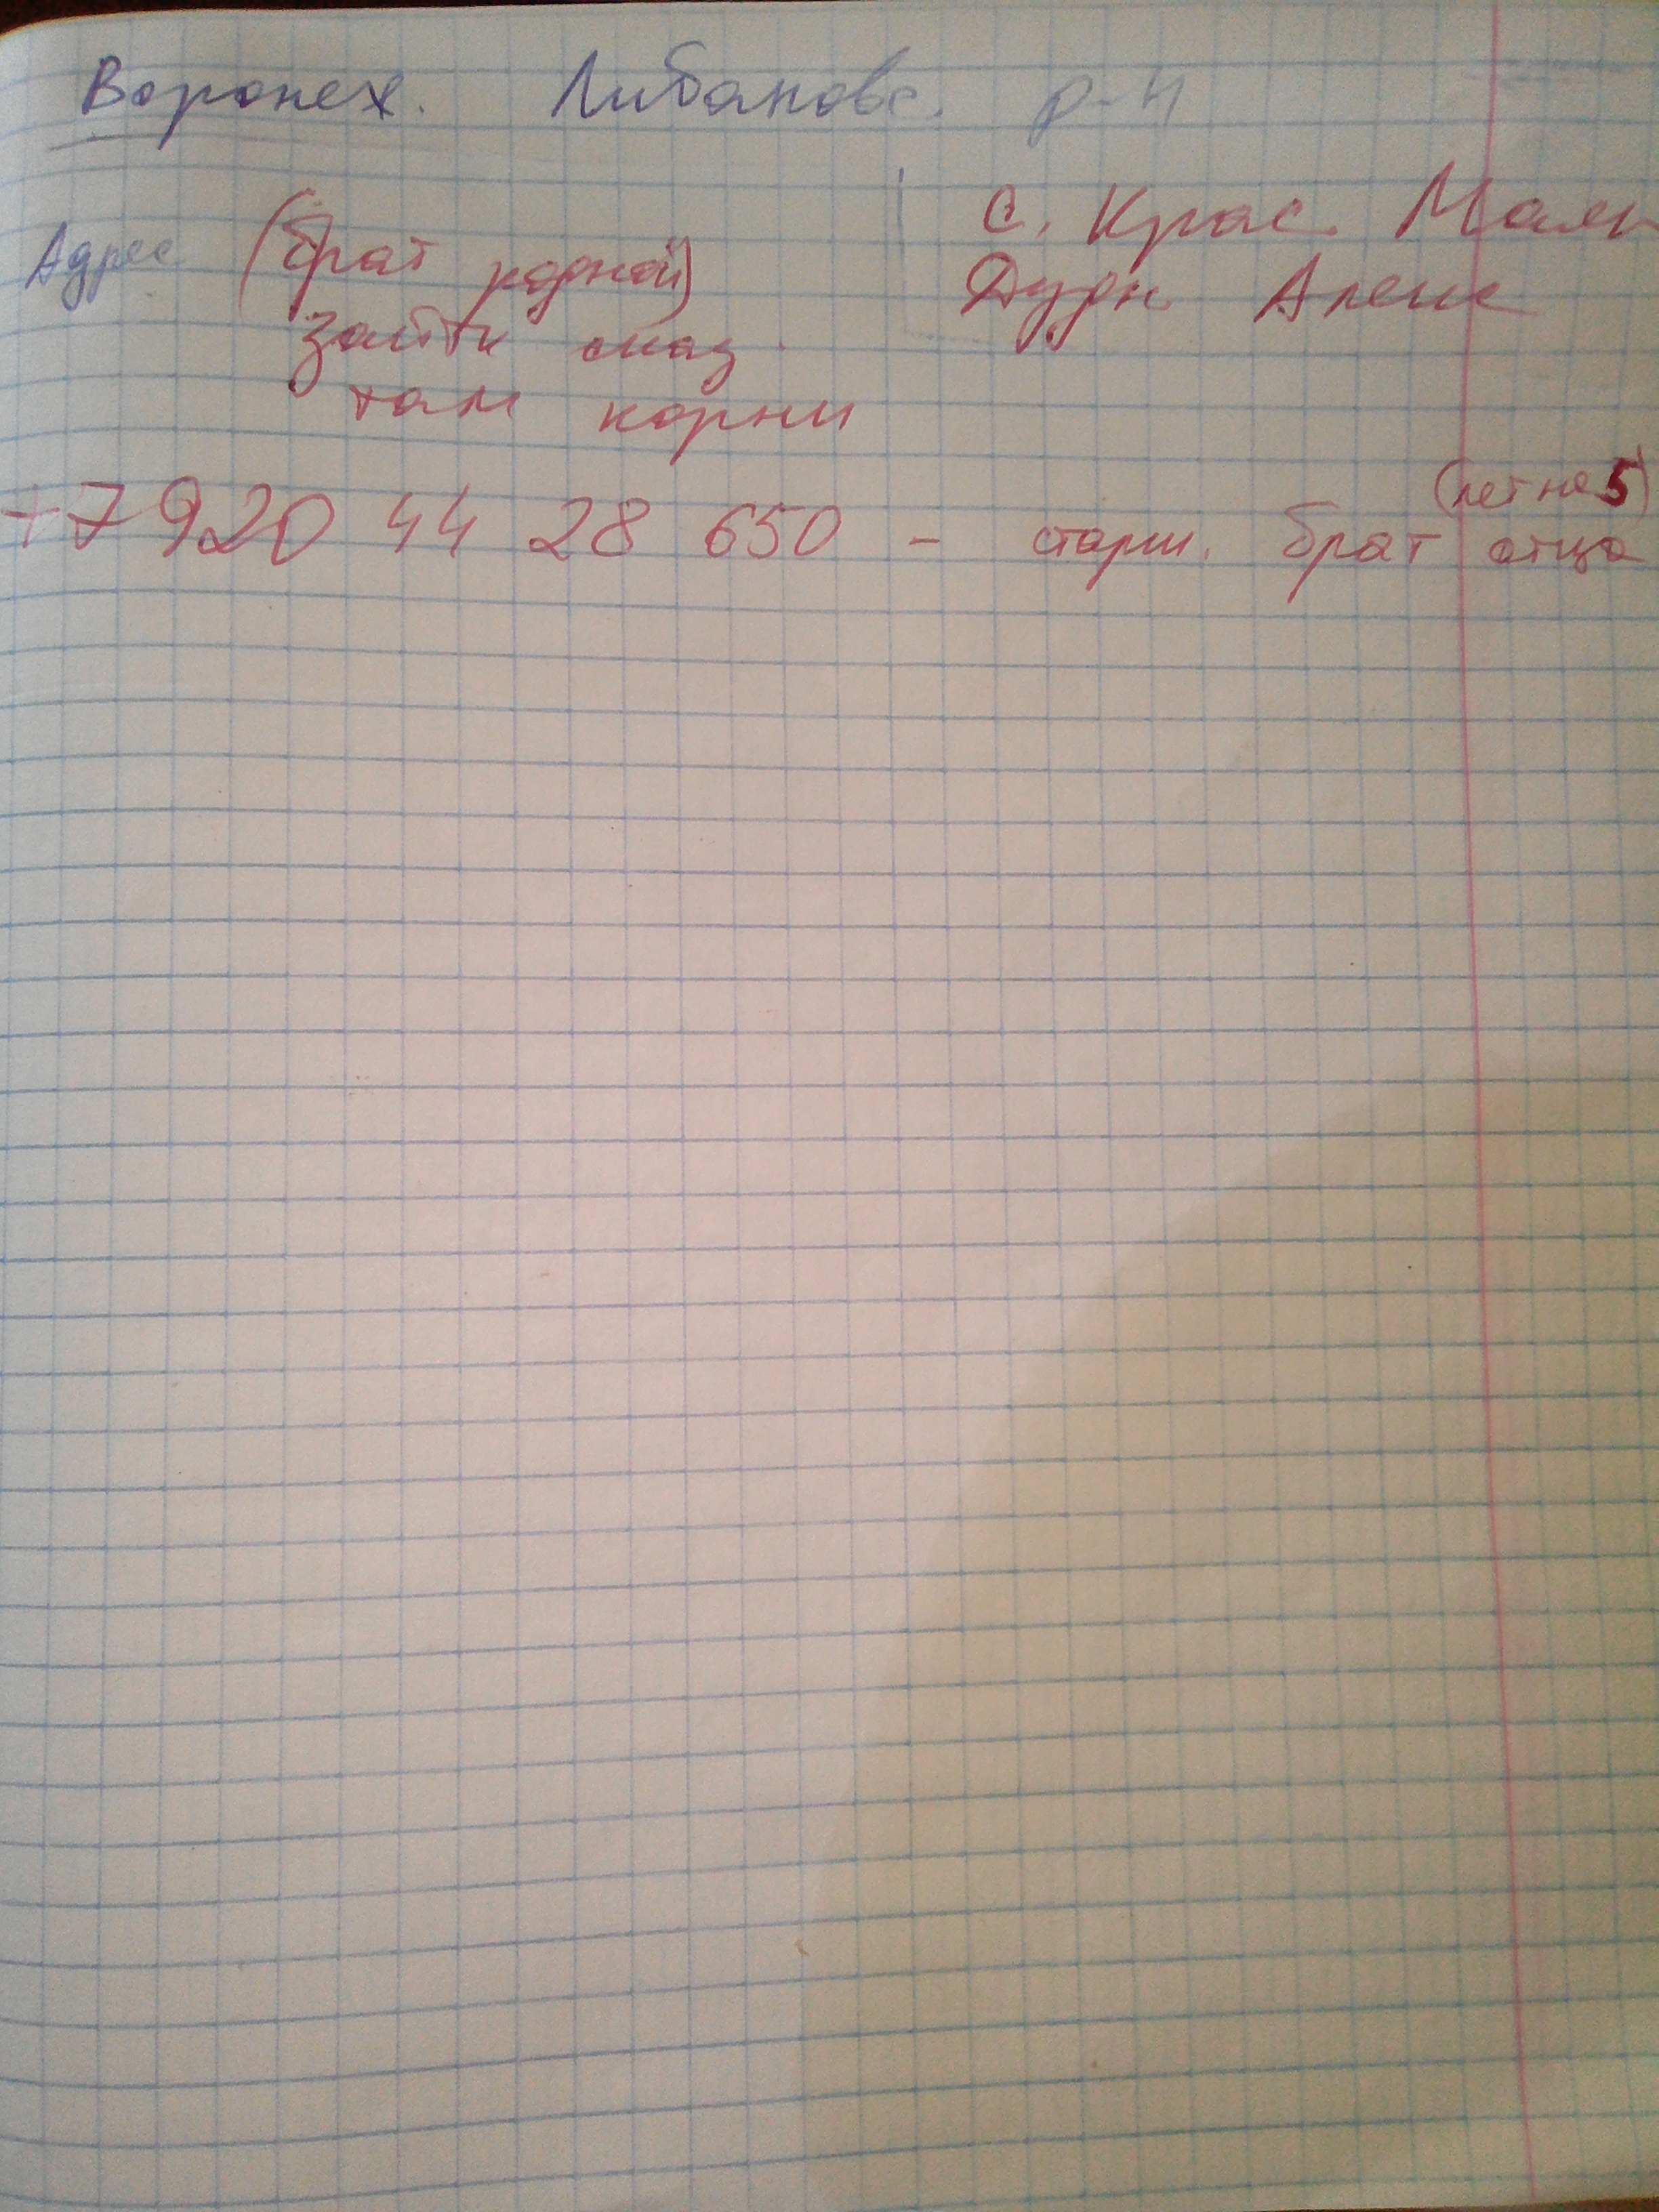 Воронеж. Либановс. р-н
Адрес (брат родной)
зайти сказ.
там корни
с. Крас. Маяк
Дудн Алекс
+7 920 44 28 650 - старш. брат отца
(лет на 5)